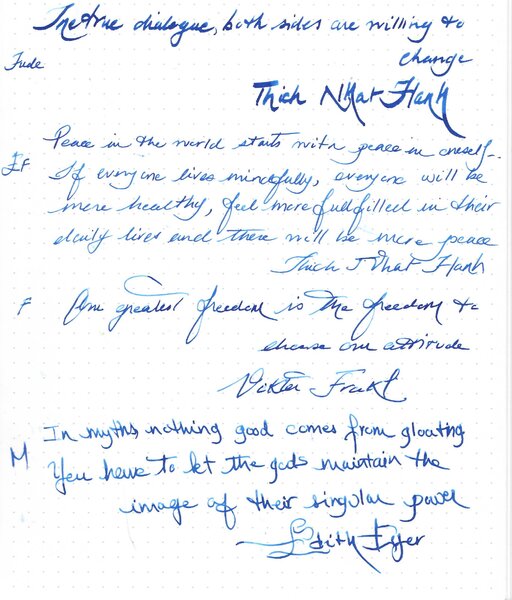 In true dialogue, both sides are willing to
Fude
change
Thich Nhat Hanh
Peace in the world starts with peace in oneself.
EF
If everyone lives mindfully, everyone will be
more healthy, feel more fullfilled in their
daily lives and there will be more peace
Thich Nhat Hanh
F
Our greatest freedom is the freedom to
choose our attitude
Viktor Frankl
In myths, nothing good comes from gloating
M
You have to let the gods maintain the
image of their singular power
Edith Eger